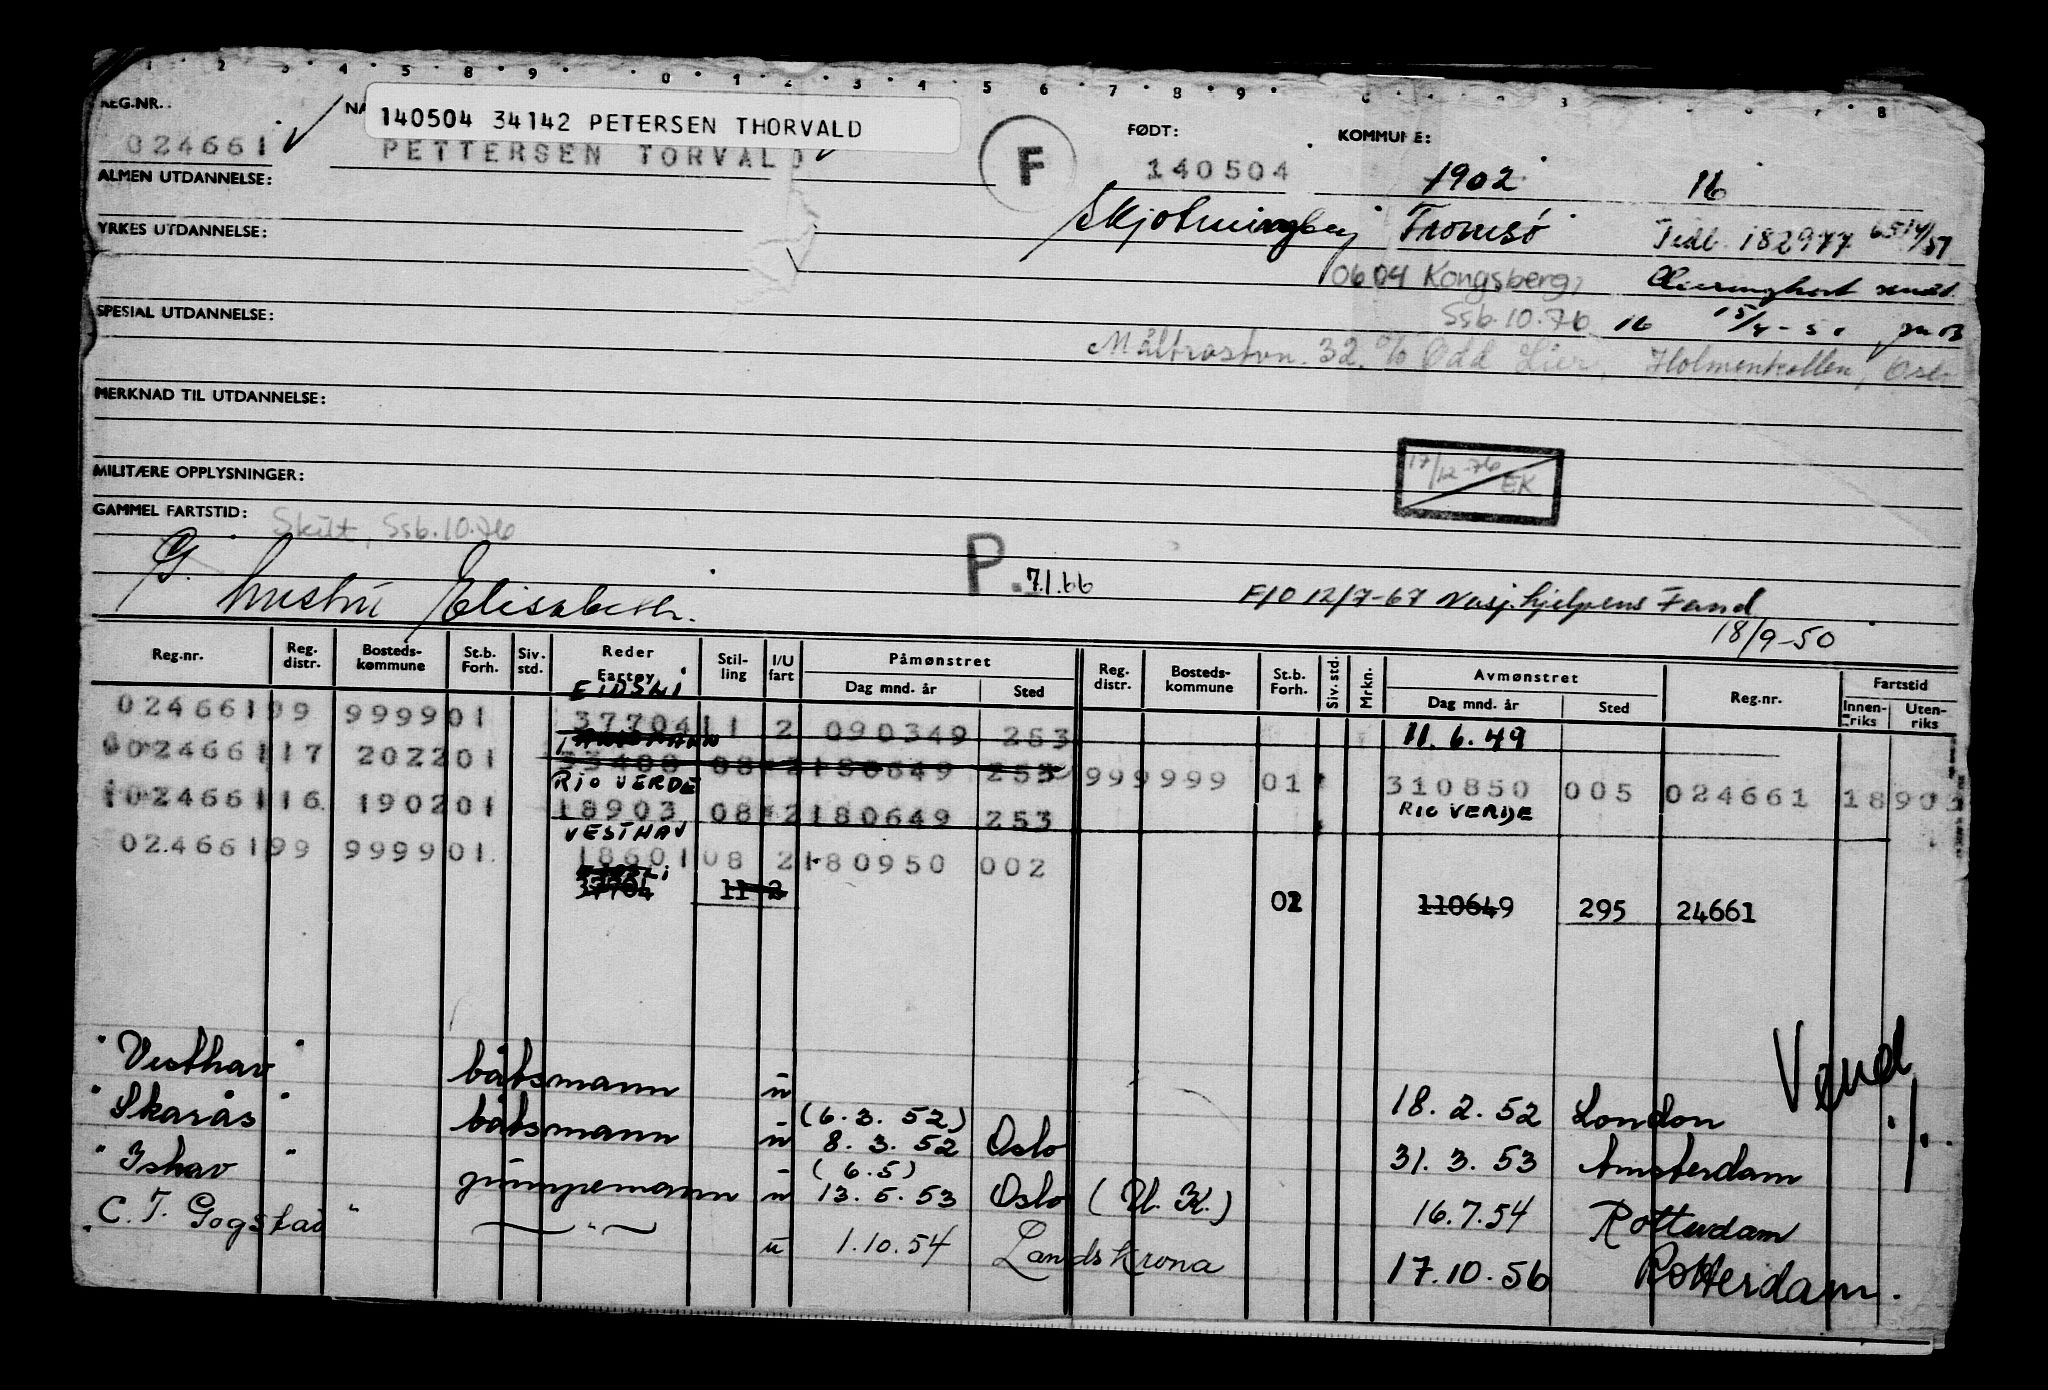 REG.NR.: NA 140504 34142 PETERSEN THORVALD FØDT: KOMMUNE:
024661 PETTERSEN TORVALD F 140504 1902 16
ALMEN UTDANNELSE:
Tromsø Tedl. 182977
YRKES UTDANNELSE:
0604 Kongsberg,
Ssb.10.76 16 15/4-51
SPESIAL UTDANNELSE:
32 % Odd Lier, Holmenkollen, Oslo
MERKNAD TIL UTDANNELSE:
17/12-76 EK
MILITÆRE OPPLYSNINGER:
GAMMEL FARTSTID: Skilt, Ssb.10.76
G. hustru Elisabeth. P. 7.1.66 F/O 12/7-67 Nasj.hjelpens Fond
18/9-50
Reg.nr. Reg. distr. Bosteds-kommune St.b. Forh. Siv. std. Reder Fartøy Stil-ling I/U fart Påmønstret Dag mnd. år Sted Reg. distr. Bosteds-kommune St.b. Forh. Siv. std. Mrkn. Avmønstret Dag mnd. år Sted Reg.nr. Fartstid Innen-riks Uten-riks
EIDSLI
024661 99 9999 01 37704 11 2 090349 253 11.6.49
024661 17 2022 01 33408 08 2 180649 253 99 9999 01 310850 005 024661 18903
RIO VERDE RIO VERDE
024661 16 1902 01 18903 08 2 180649 253
VESTHAV
024661 99 9999 01 18601 08 2 180950 002
37704 11 2 02 110649 295 24661
"Vesthav" båtsmann u 18.2.52 London Vend ./.
(6.3.52)
"Skarås" båtsmann u 8.3.52 Oslo 31.3.53 Amsterdam
(6.5)
"Ishav" pumpemann u 13.5.53 Oslo (U.K.) 16.7.54 Rotterdam
"C.T. Gogstad" — " — u 1.10.54 Landskrona 17.10.56 Rotterdam.